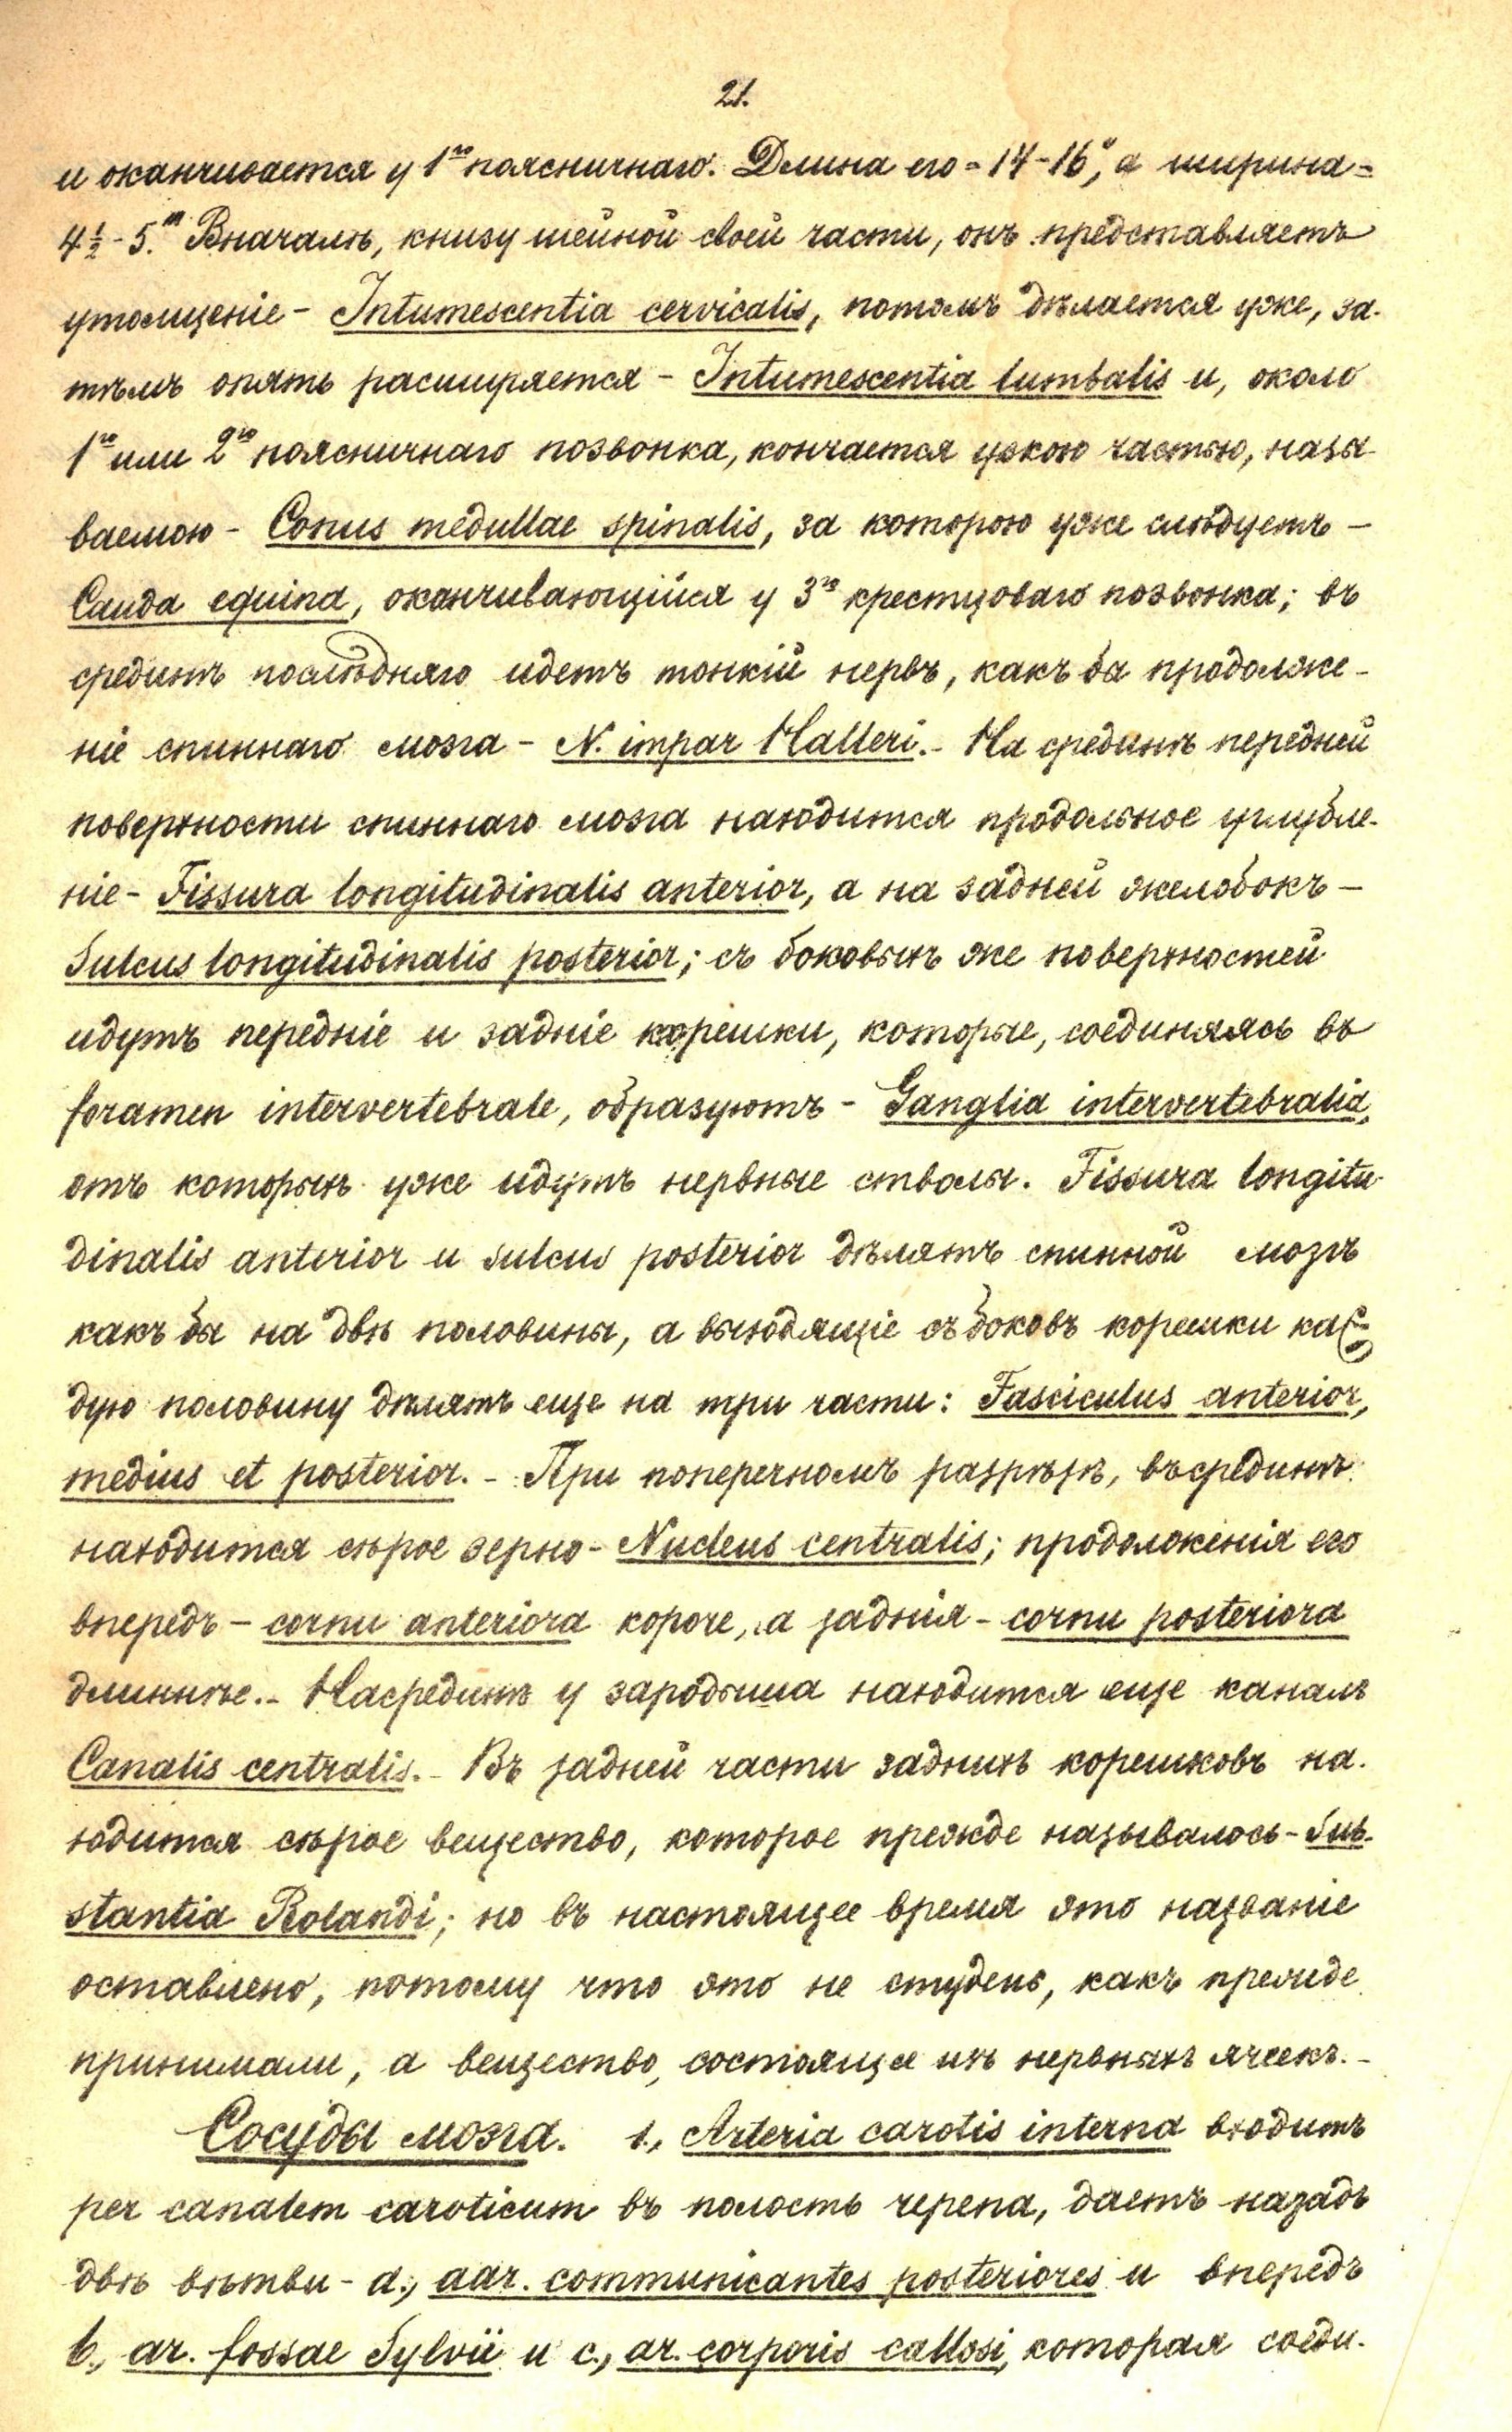 21.
и оканчивается у 1го поясничнаго. Длина его = 14-16", а ширина =
4½-5."' Вначалѣ, книзу шейной своей части, онъ представляетъ
утолщеніе - Intumescentia cervicalis, потомъ дѣлается уже, за-
тѣмъ опять расширяется - Intumescentia lumbalis и, около
1го или 2го поясничнаго позвонка, кончается узкою частью, назы-
ваемою - Conus medullae spinalis, за которою уже слѣдуетъ -
Cauda equina, оканчивающійся у 3го крестцоваго позвонка; въ
срединѣ послѣдняго идетъ тонкій нервъ, какъ бы продолже-
ніе спиннаго мозга - N. impar Halleri. - На срединѣ передней
поверхности спиннаго мозга находится продольное углубле-
ніе - Fissura longitudinalis anterior, а на задней желобокъ -
Sulcus longitudinalis posterior; съ боковыхъ же поверхностей
идутъ передніе и задніе корешки, которые, соединяясь въ
foramen intervertebrale, образуютъ - Ganglia intervertebralia,
отъ которыхъ уже идутъ нервные стволы. Fissura longitu-
dinalis anterior и sulcus posterior дѣлятъ спинной мозгъ
какъ бы на двѣ половины, а выходящіе съ боковъ корешки каж-
дую половину дѣлятъ еще на три части: Fasciculus anterior,
medius et posterior. - При поперечномъ разрѣзѣ, въ срединѣ
находится сѣрое зерно - Nucleus centralis; продолженія его
впередъ - cornu anteriora короче, а заднія - cornu posteriora
длиннѣе. - На срединѣ у зародыша находится еще каналъ
Canalis centralis. - Въ задней части заднихъ корешковъ на-
ходится сѣрое вещество, которое прежде называлось - Sub-
stantia Rolandi; но въ настоящее время это названіе
оставлено, потому что это не студень, какъ прежде
принимали, а вещество, состоящее изъ нервныхъ ячеекъ. -
Сосуды мозга. 1., Arteria carotis interna входитъ
per canalem caroticum въ полость черепа, даетъ назадъ
двѣ вѣтви - a., aar. communicantes posteriores и впередъ
b., ar. fossae Sylvii и c., ar. corporis callosi, которая соеди-